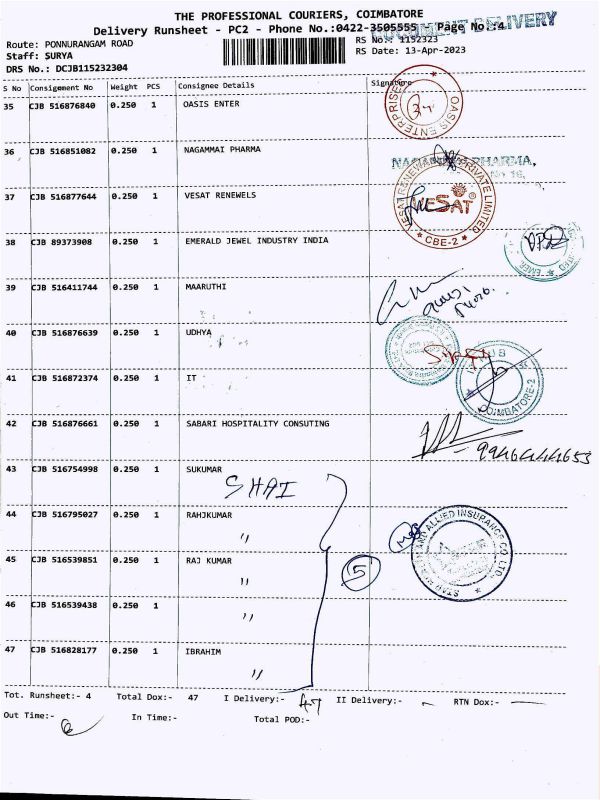 THE PROFESSIONAL COURIERS, COIMBATORE
Delivery Runsheet - PC2 - Phone No.:0422-3505555 - Page No.:4
DOCUMENT DELIVERY
Route: PONNURANGAM ROAD
RS No.: 1152323
Staff: SURYA
RS Date: 13-Apr-2023
DRS No.: DCJB115232304
S No Consignment No Weight PCS Consignee Details Signature
35 CJB 516876840 0.250 1 OASIS ENTER
OASIS ENTERPRISES
36 CJB 516851082 0.250 1 NAGAMMAI PHARMA
NAGAMMAI PHARMA,
37 CJB 516877644 0.250 1 VESAT RENEWELS
VESAT RENEWABLE PRIVATE LIMITED
VESAT
★ CBE-2 ★
38 CJB 89373908 0.250 1 EMERALD JEWEL INDUSTRY INDIA
39 CJB 516411744 0.250 1 MAARUTHI
40 CJB 516876639 0.250 1 UDHYA
41 CJB 516872374 0.250 1 IT
HUB
COIMBATORE-2
42 CJB 516876661 0.250 1 SABARI HOSPITALITY CONSUTING
9946444653
43 CJB 516754998 0.250 1 SUKUMAR
SHAI
44 CJB 516795027 0.250 1 RAHJKUMAR
"
45 CJB 516539851 0.250 1 RAJ KUMAR
"
5
STAR HEALTH AND ALLIED INSURANCE CO. LTD.,
46 CJB 516539438 0.250 1
"
47 CJB 516828177 0.250 1 IBRAHIM
"
Tot. Runsheet:- 4 Total Dox:- 47 I Delivery:- 47 II Delivery:- RTN Dox:-
Out Time:- In Time:- Total POD:-